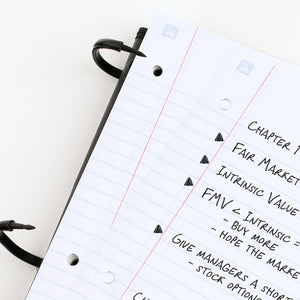 CHAPTER 1
FAIR MARKET
INTRINSIC VALUE
FMV < INTRINSIC
- BUY MORE
- HOPE THE MARKE
GIVE MANAGERS A SHOR
- STOCK OPTION